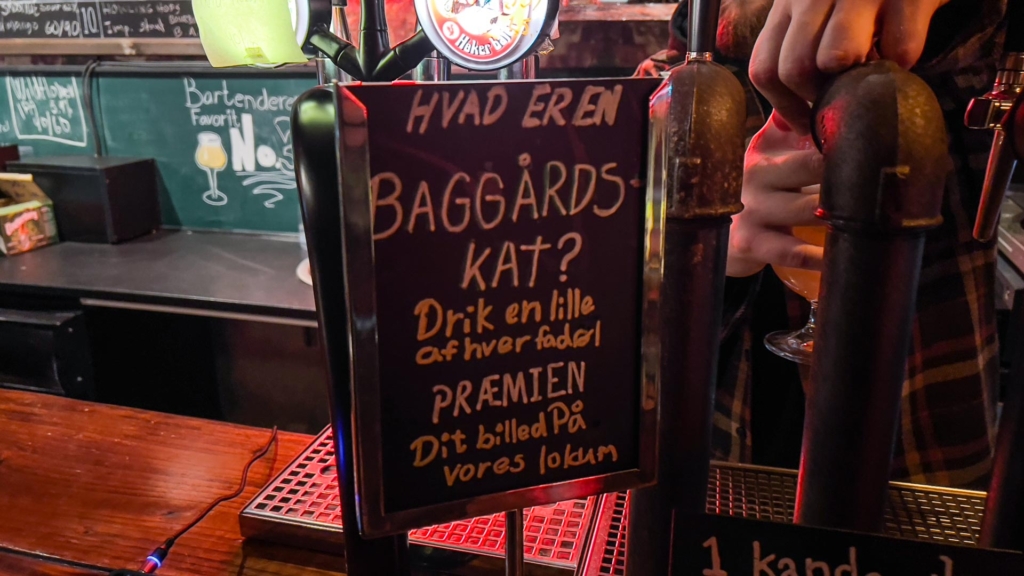 60/40
Bartendere
Favorit
No.
Høker
HVAD ER EN
BAGGÅRDS-
KAT?
Drik en lille
af hver fadøl
PRÆMIEN
Dit billed På
vores lokum
1 kande